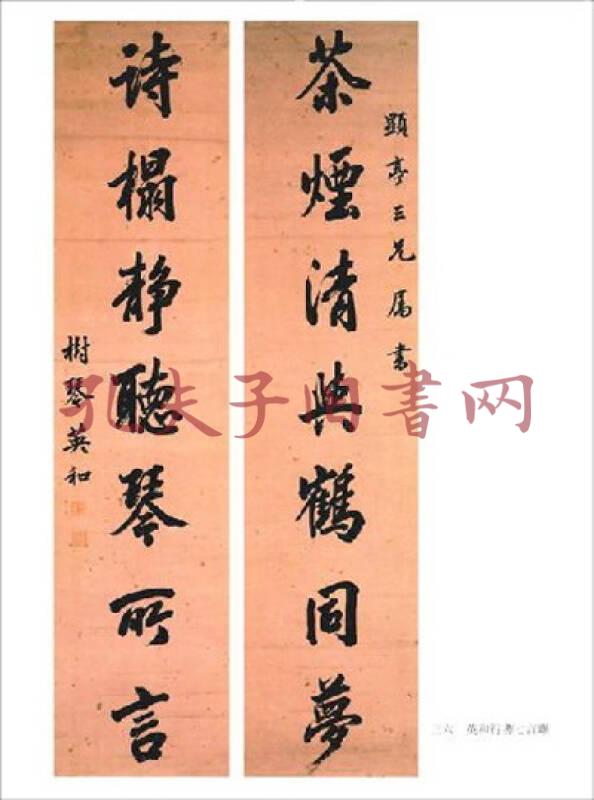 顯亭三兄屬書
茶煙清與鶴同夢
詩榻靜聽琴所言
樹琴英和
孔夫子旧书网
三六 英和行書七言聯